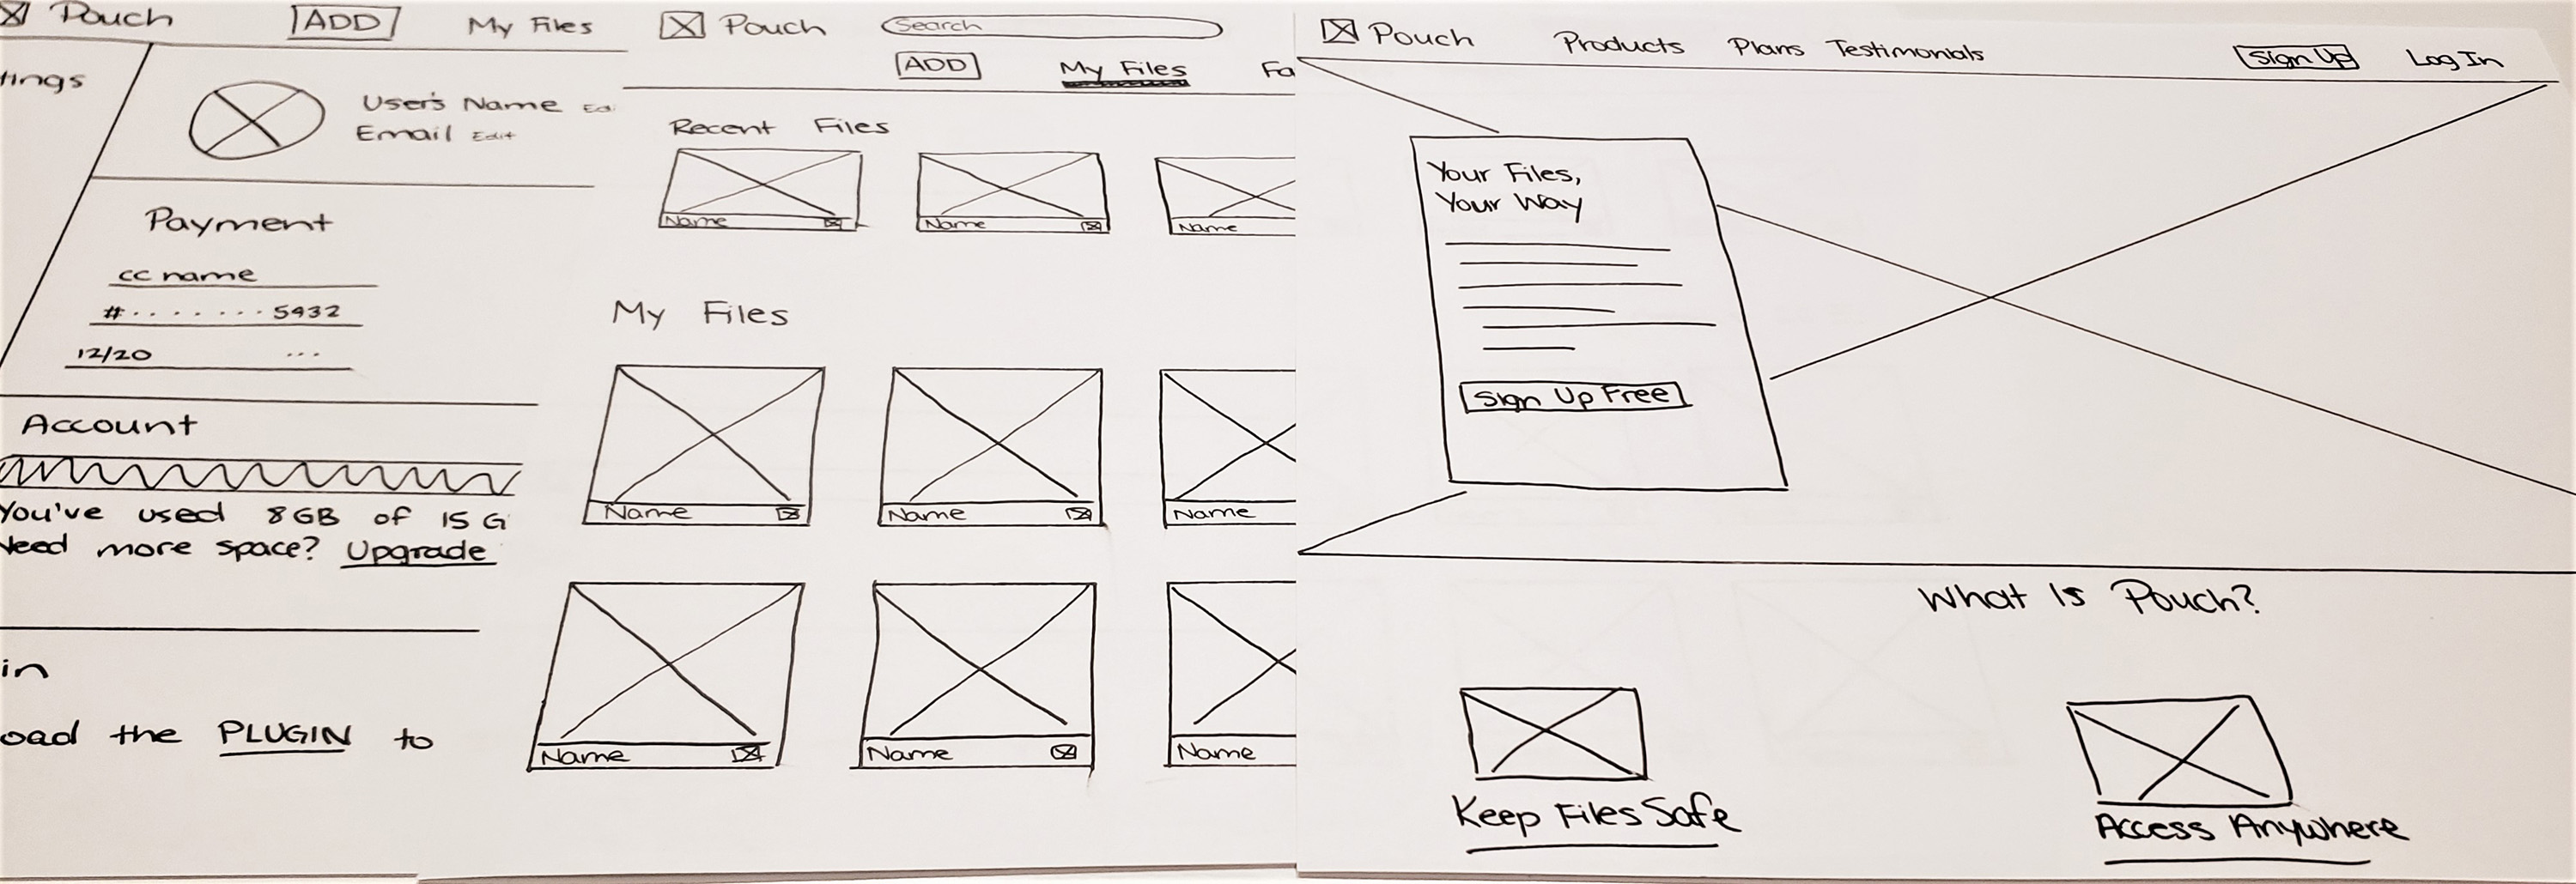 Pouch
ADD
My Files
tings
User's Name
Email Edit
Payment
cc name
#........5432
12/20 ...
Account
You've used 8GB of 15 G
Need more space? Upgrade
in
oad the PLUGIN to
Pouch
Search
ADD
My Files
Fa
Recent Files
Name
Name
Name
My Files
Name
Name
Name
Name
Name
Name
Pouch
Products
Plans
Testimonials
Sign Up
Log In
Your Files,
Your Way
Sign Up Free
What Is Pouch?
Keep Files Safe
Access Anywhere